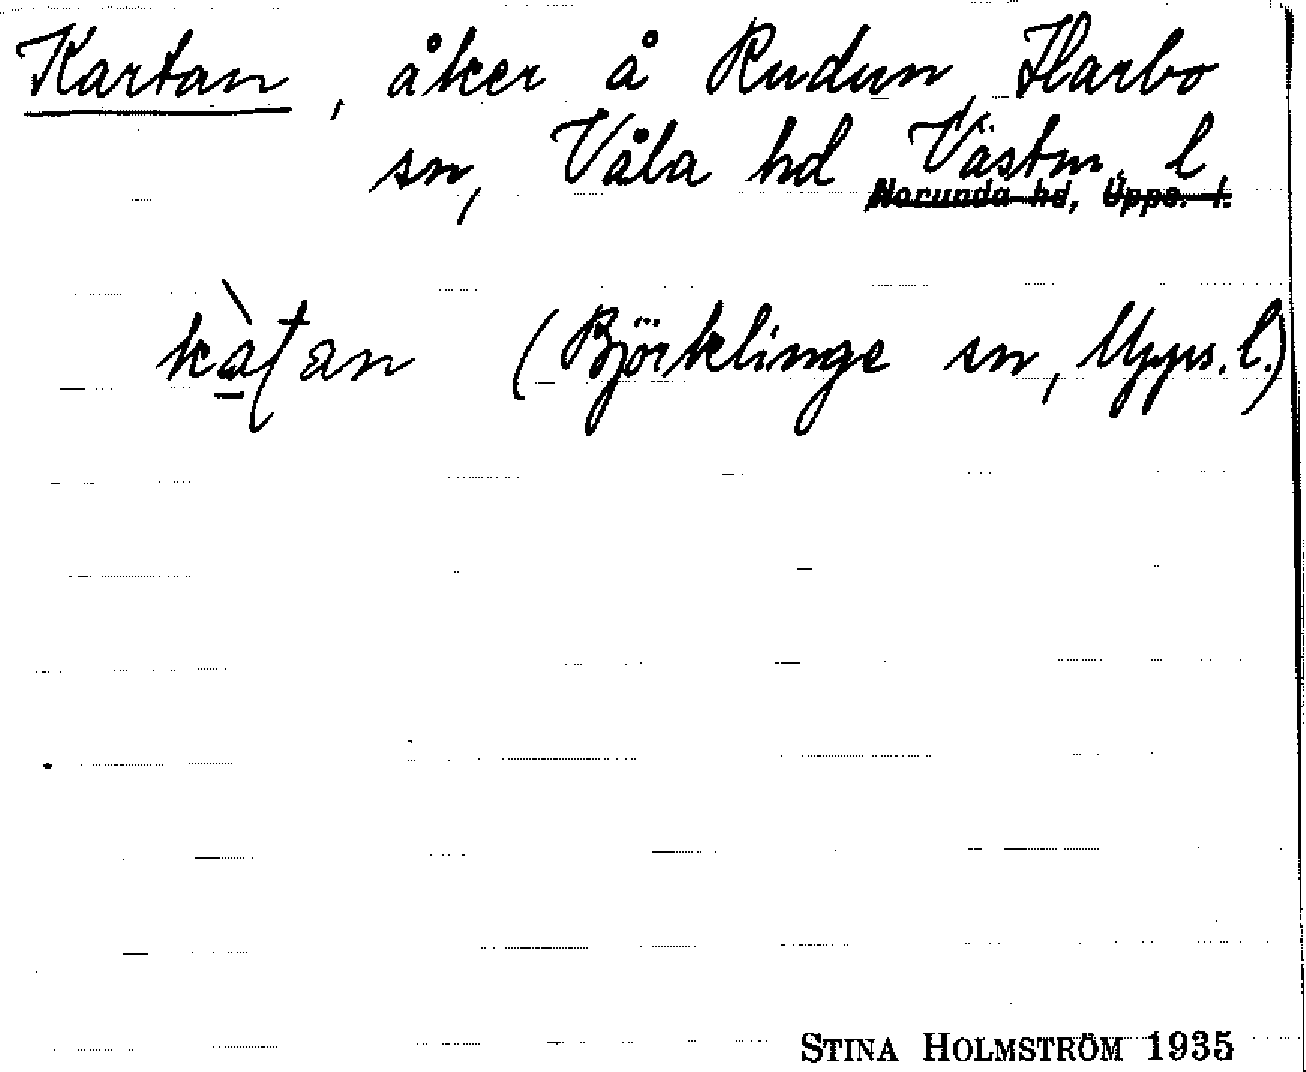 Kartan, åker å Rudun Harbo
sn, Våla hd Västm. l.
Norunda hd, Upps. l.
kàṯan (Björklinge sn, Upps. l.)
STINA HOLMSTRÖM 1935